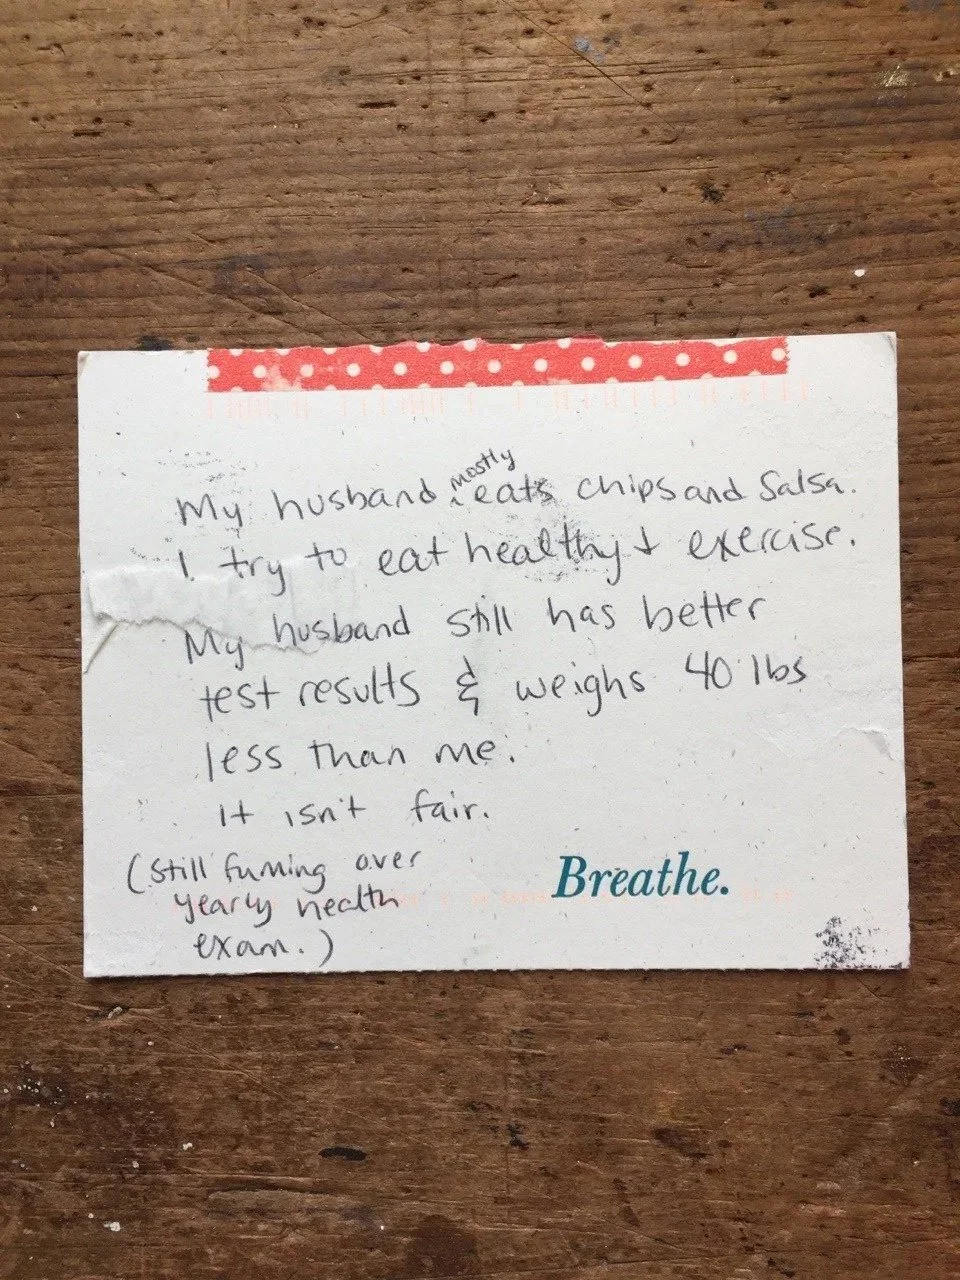 My husband mostly eats chips and Salsa.
I try to eat healthy & exercise.
My husband still has better
test results & weighs 40 lbs
less than me.
It isn't fair.
(Still fuming over
yearly health
exam.)
Breathe.